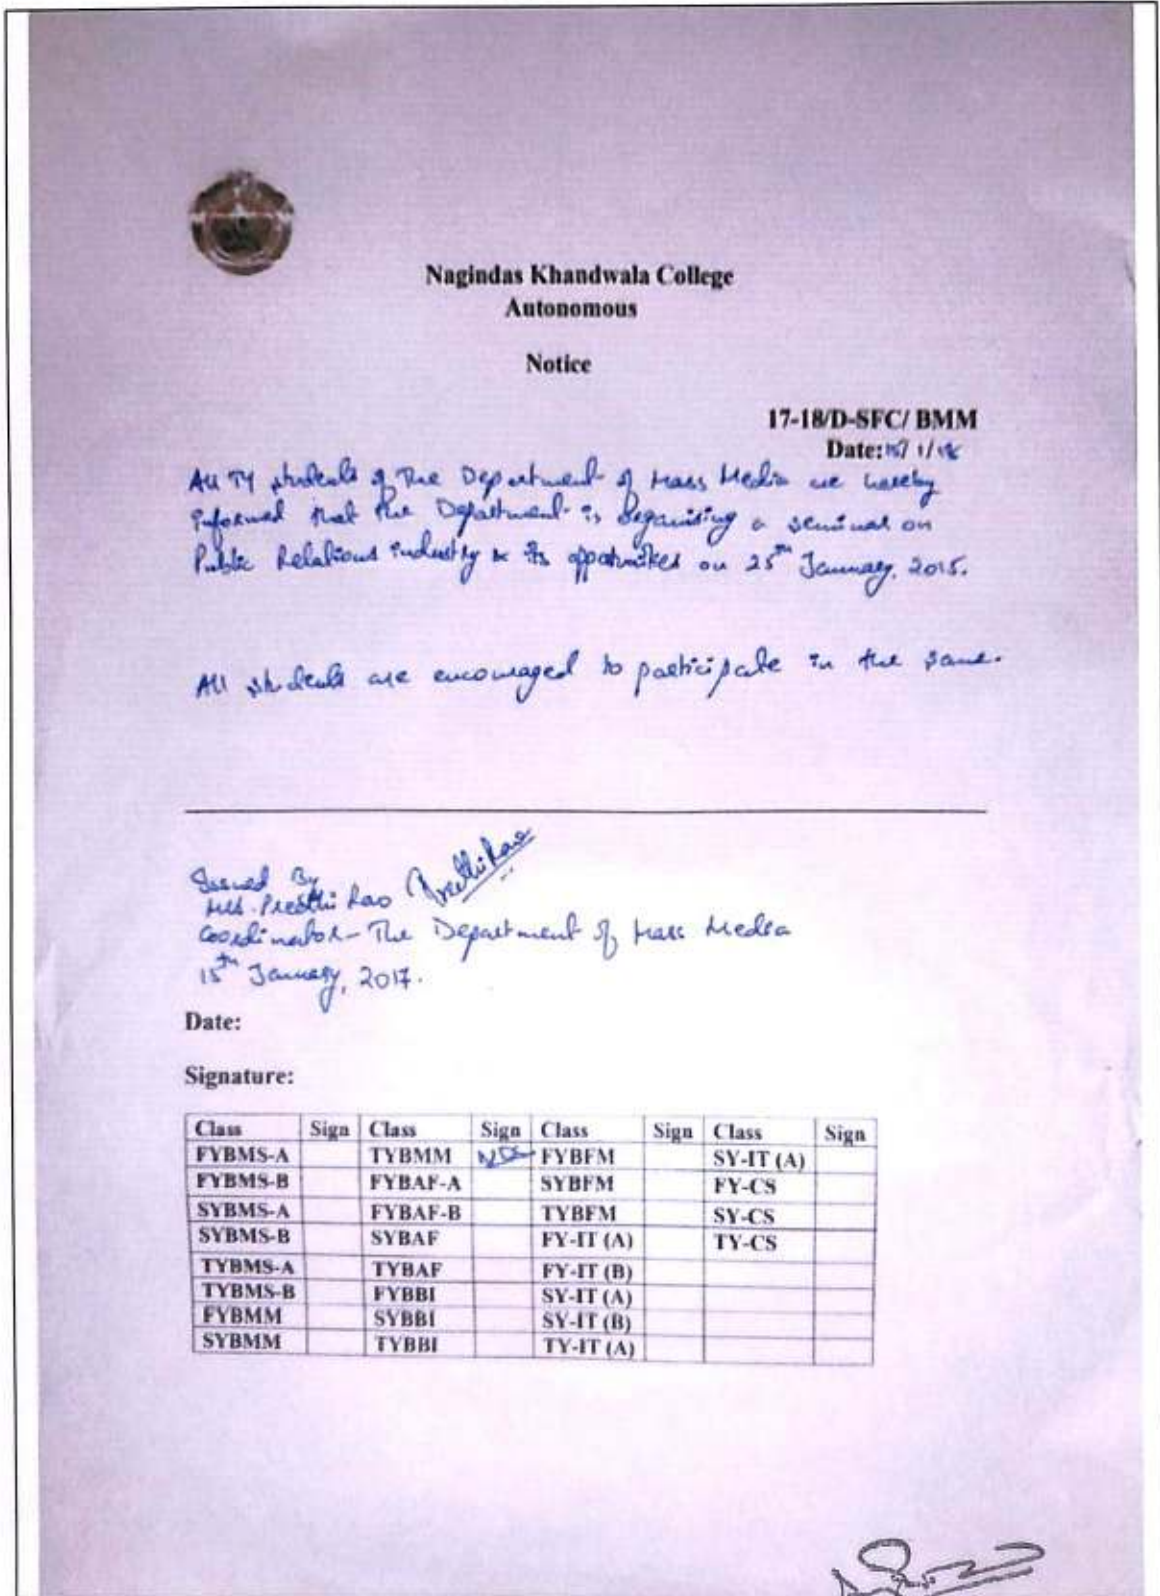 Nagindas Khandwala College
Autonomous
Notice
17-18/D-SFC/ BMM
Date: 15/1/18
All TY students of The Department of Mass Media are hereby
informed that the Department is organising a seminar on
Public Relations industry & its opportunities on 25th January, 2015.
All students are encouraged to participate in the same.
Issued By
Ms. Preethi Rao Preethi Rao
Coordinator - The Department of Mass Media
15th January, 2017.
Date:
Signature:
Class Sign Class Sign Class Sign Class Sign
FYBMS-A TYBMM FYBFM SY-IT (A)
FYBMS-B FYBAF-A SYBFM FY-CS
SYBMS-A FYBAF-B TYBFM SY-CS
SYBMS-B SYBAF FY-IT (A) TY-CS
TYBMS-A TYBAF FY-IT (B)
TYBMS-B FYBBI SY-IT (A)
FYBMM SYBBI SY-IT (B)
SYBMM TYBBI TY-IT (A)